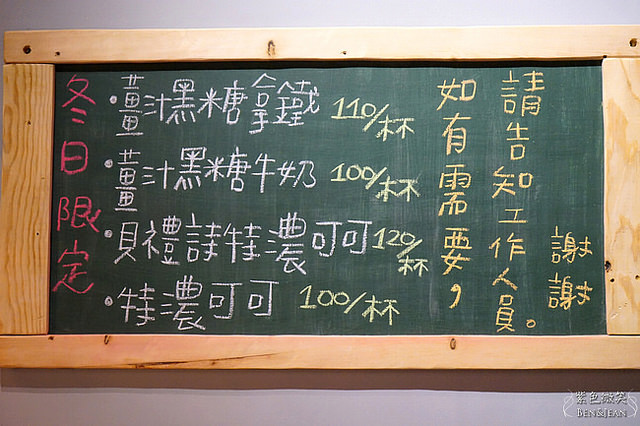 冬日限定
·薑汁黑糖拿鐵 110/杯
·薑汁黑糖牛奶 100/杯
·貝禮詩特濃可可 120/杯
·特濃可可 100/杯
如有需要，
請告知工作人員。
謝謝
紫色微笑
BEN&JEAN